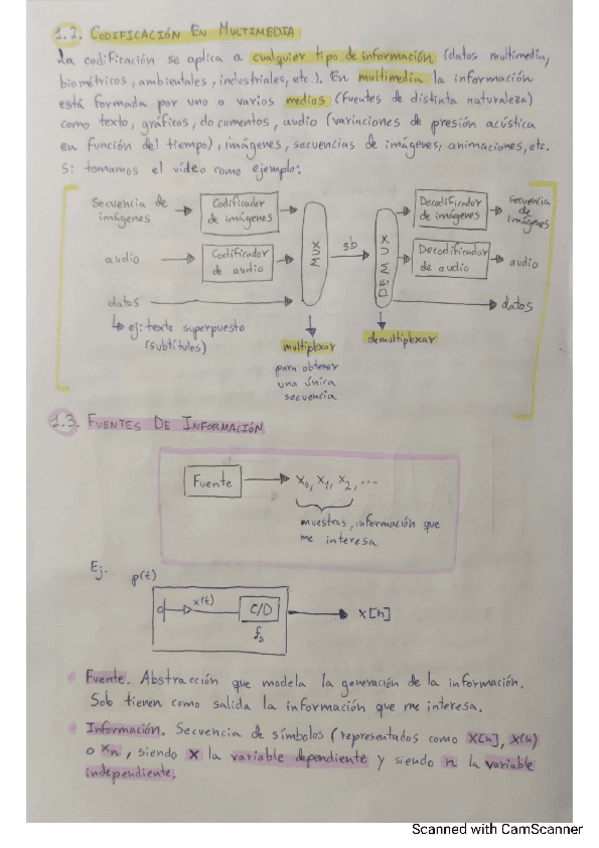 1.2. CODIFICACIÓN EN MULTIMEDIA
La codificación se aplica a cualquier tipo de información (datos multimedia,
biométricos, ambientales, industriales, etc.). En multimedia la información
está formada por uno o varios medios (fuentes de distinta naturaleza)
como texto, gráficos, documentos, audio (variaciones de presión acústica
en función del tiempo), imágenes, secuencias de imágenes, animaciones, etc.
Si tomamos el vídeo como ejemplo:
Secuencia de
imágenes
Codificador
de imágenes
Decodificador
de imágenes
secuencia
de
imágenes
audio
Codificador
de audio
MUX
sb
DEMUX
Decodificador
de audio
audio
datos
datos
↳ ej: texto superpuesto
(subtítulos)
multiplexar
para obtener
una única
secuencia
demultiplexar
1.3. FUENTES DE INFORMACIÓN
Fuente
x0, x1, x2, ...
muestras, información que
me interesa
Ej.
p(t)
x(t)
C/D
fs
x[n]
Fuente. Abstracción que modela la generación de la información.
Sob tienen como salida la información que me interesa.
Información. Secuencia de símbolos (representados como x[n], x(n)
o xn, siendo x la variable dependiente y siendo n la variable
independiente.
Scanned with CamScanner